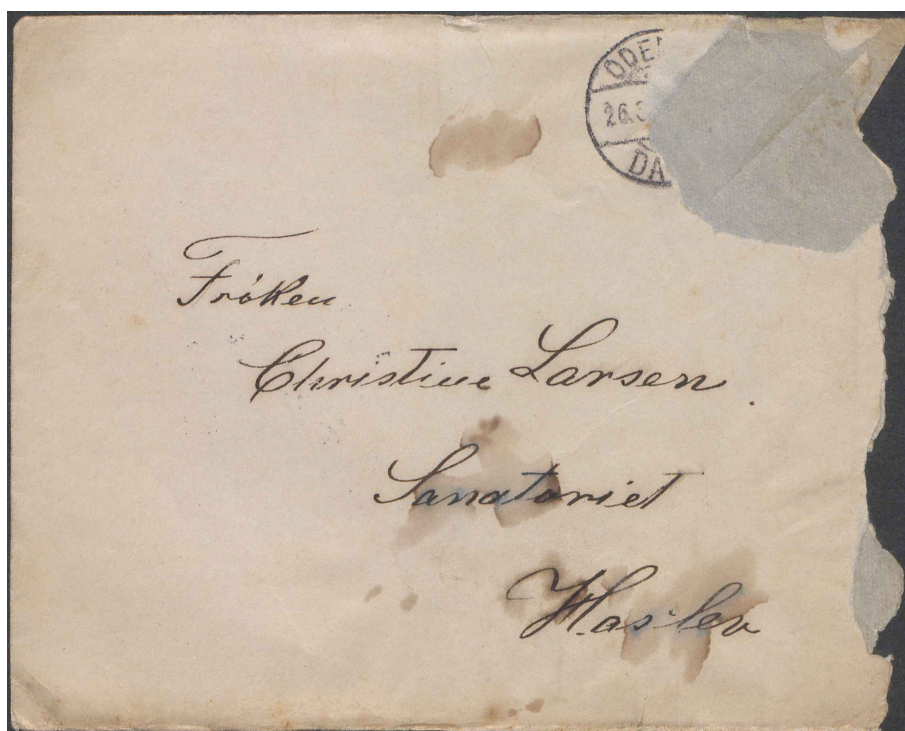 ODE
26.
DA
Fröken
Christine Larsen.
Sanatoriet
Haslev